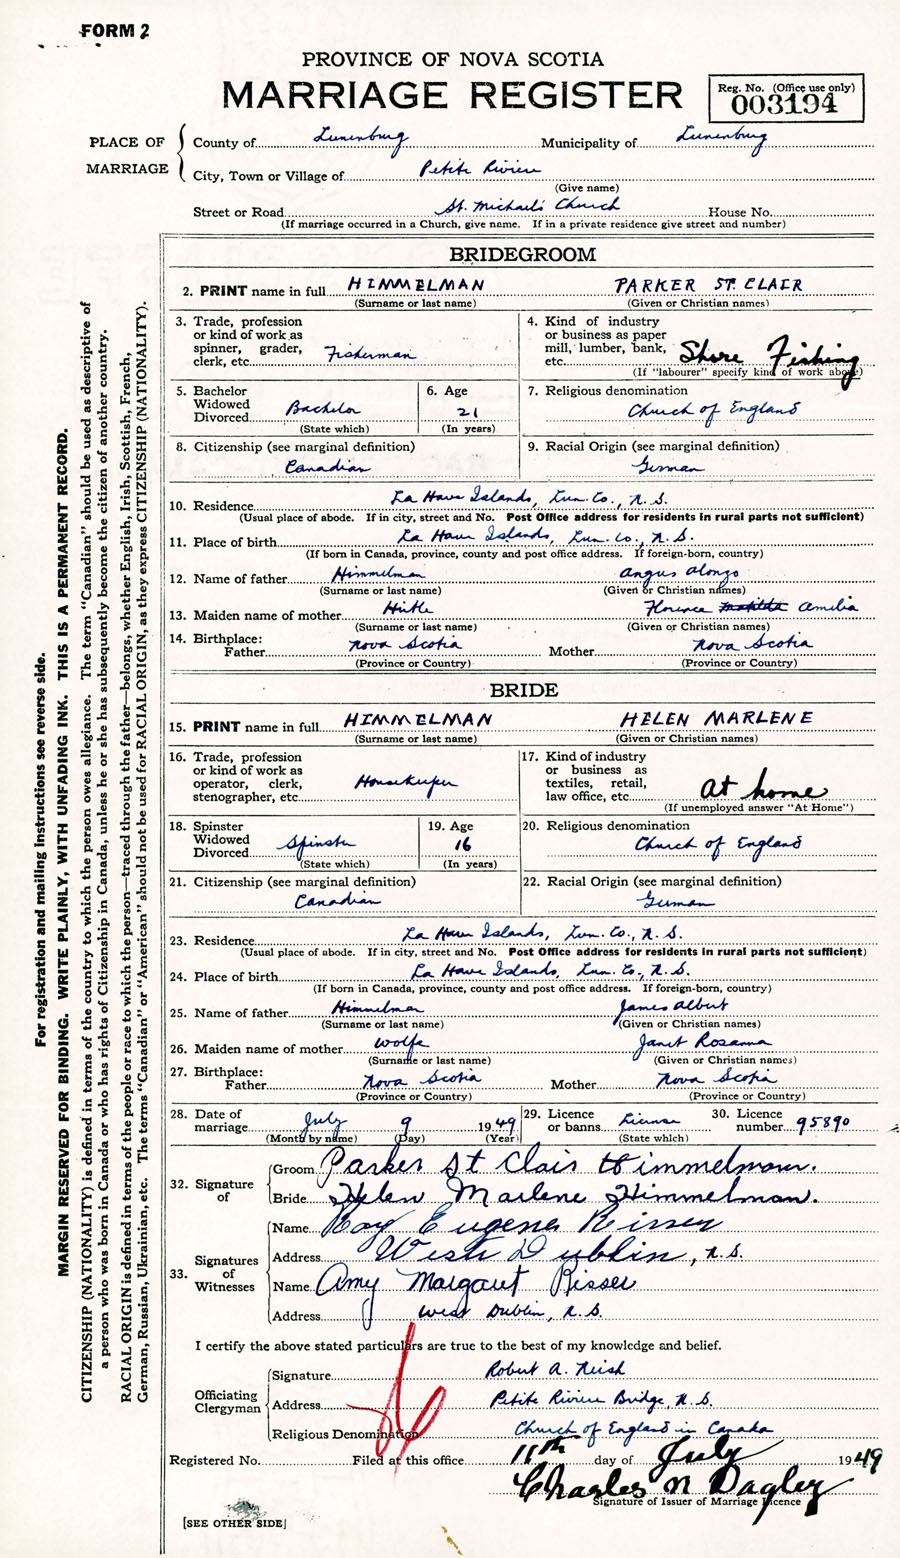 FORM 2
PROVINCE OF NOVA SCOTIA
MARRIAGE REGISTER
Reg. No. (Office use only)
003194
PLACE OF MARRIAGE
County of Lunenburg Municipality of Lunenburg
City, Town or Village of Petite Riviere
(Give name)
Street or Road St. Michael's Church House No.
(If marriage occurred in a Church, give name. If in a private residence give street and number)
BRIDEGROOM
2. PRINT name in full HIMMELMAN PARKER ST. CLAIR
(Surname or last name) (Given or Christian names)
3. Trade, profession or kind of work as spinner, grader, clerk, etc. Fisherman
4. Kind of industry or business as paper mill, lumber, bank, etc. Shore Fishing
(If "labourer" specify kind of work above)
5. Bachelor Widowed Divorced Bachelor
(State which)
6. Age 21
(In years)
7. Religious denomination
Church of England
8. Citizenship (see marginal definition)
Canadian
9. Racial Origin (see marginal definition)
German
10. Residence La Have Islands, Lun. Co., N. S.
(Usual place of abode. If in city, street and No. Post Office address for residents in rural parts not sufficient)
11. Place of birth La Have Islands, Lun. Co., N. S.
(If born in Canada, province, county and post office address. If foreign-born, country)
12. Name of father Himmelman Angus Alonzo
(Surname or last name) (Given or Christian names)
13. Maiden name of mother Hirtle Florence Matilda Amelia
(Surname or last name) (Given or Christian names)
14. Birthplace:
Father Nova Scotia Mother Nova Scotia
(Province or Country) (Province or Country)
BRIDE
15. PRINT name in full HIMMELMAN HELEN MARLENE
(Surname or last name) (Given or Christian names)
16. Trade, profession or kind of work as operator, clerk, stenographer, etc. Housekeeper
17. Kind of industry or business as textiles, retail, law office, etc. At home
(If unemployed answer "At Home")
18. Spinster Widowed Divorced Spinster
(State which)
19. Age 16
(In years)
20. Religious denomination
Church of England
21. Citizenship (see marginal definition)
Canadian
22. Racial Origin (see marginal definition)
German
23. Residence La Have Islands, Lun. Co., N. S.
(Usual place of abode. If in city, street and No. Post Office address for residents in rural parts not sufficient)
24. Place of birth La Have Islands, Lun. Co., N. S.
(If born in Canada, province, county and post office address. If foreign-born, country)
25. Name of father Himmelman James Albert
(Surname or last name) (Given or Christian names)
26. Maiden name of mother Wolfe Janet Rosanna
(Surname or last name) (Given or Christian names)
27. Birthplace:
Father Nova Scotia Mother Nova Scotia
(Province or Country) (Province or Country)
28. Date of marriage July 9 1949
(Month by name) (Day) (Year)
29. Licence or banns License
(State which)
30. Licence number 95890
32. Signature of
Groom Parker St Clair Himmelman.
Bride Helen Marlene Himmelman.
33. Signatures of Witnesses
Name Roy Eugene Risser
Address West Dublin, N. S.
Name Amy Margaret Risser
Address West Dublin, N. S.
I certify the above stated particulars are true to the best of my knowledge and belief.
Officiating Clergyman
Signature Robert A. Neish
Address Petite Riviere Bridge, N. S.
Religious Denomination Church of England in Canada
Registered No. Filed at this office 11th day of July 1949
Charles N Dagley
Signature of Issuer of Marriage Licence
[SEE OTHER SIDE]
For registration and mailing instructions see reverse side.
MARGIN RESERVED FOR BINDING. WRITE PLAINLY, WITH UNFADING INK. THIS IS A PERMANENT RECORD.
CITIZENSHIP (NATIONALITY) is defined in terms of the country to which the person owes allegiance. The term "Canadian" should be used as descriptive of
a person who was born in Canada or who has rights of Citizenship in Canada, unless he or she has subsequently become the citizen of another country.
RACIAL ORIGIN is defined in terms of the people or race to which the person—traced through the father—belongs, whether English, Irish, Scottish, French,
German, Russian, Ukrainian, etc. The terms "Canadian" or "American" should not be used for RACIAL ORIGIN, as they express CITIZENSHIP (NATIONALITY).